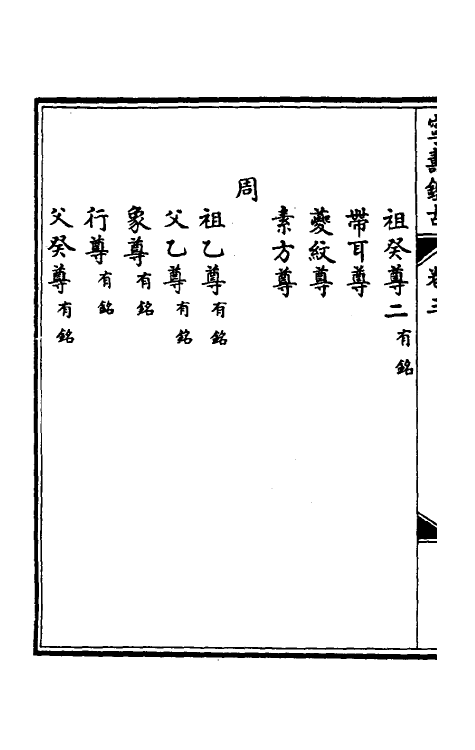 寧壽鑑古 卷三
祖癸尊二 有銘
帶耳尊
夔紋尊
素方尊
周
祖乙尊 有銘
父乙尊 有銘
象尊 有銘
行尊 有銘
父癸尊 有銘